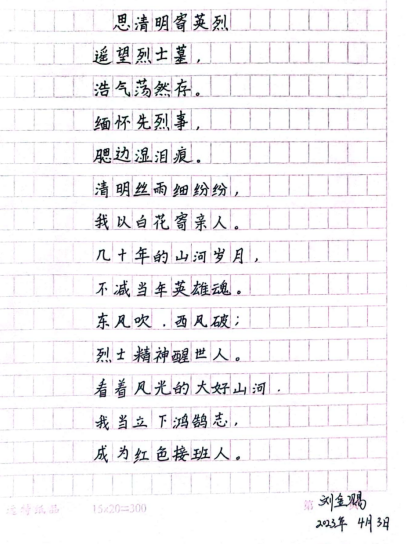 思清明寄英烈
遥望烈士墓，
浩气荡然存。
缅怀先烈事，
腮边湿泪痕。
清明丝雨细纷纷，
我以白花寄亲人。
几十年的山河岁月，
不减当年英雄魂。
东风吹，西风破；
烈士精神醒世人。
看着风光的大好山河．
我当立下鸿鹄志，
成为红色接班人。
纸品 15x20=300 第
刘金赐
2023年 4月3日